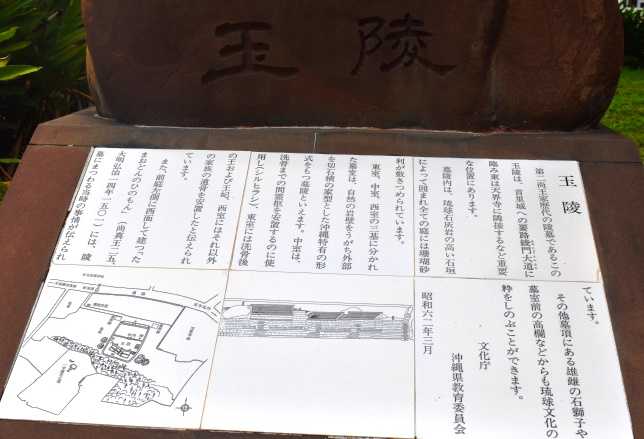 玉陵
玉陵
第二尚王家歴代の陵墓であるこの
玉陵は、首里城への要路綾門大道に
臨み東は天界寺に隣接するなど重要
な位置にあります。
墓陵内は、琉球石灰岩の高い石垣
によって囲まれ全ての庭には珊瑚砂
利が敷きつめられています。
東室、中室、西室の三基に分かれ
た墓室は、自然の岩壁をうがち外部
を切石積の家型とした沖縄特有の形
式をもつ墓陵といえます。中室は、
洗骨までの間霊柩を安置するのに使
用し(シルヒラシ)、東室には洗骨後
の王および王妃、西室にはそれ以外
の家族の遺骨を安置したと伝えられ
ています。
また、前庭左側に西面して建つた
まおとんのひのもん(尚真王二五、
大明弘治一四年一五〇一)には、陵
墓にまつわる当時の事情が伝えられ
ています。
その他墓頂にある雄雌の石獅子や
墓室前の高欄などからも琉球文化の
粋をしのぶことができます。
文化庁
沖縄県教育委員会
昭和六二年三月